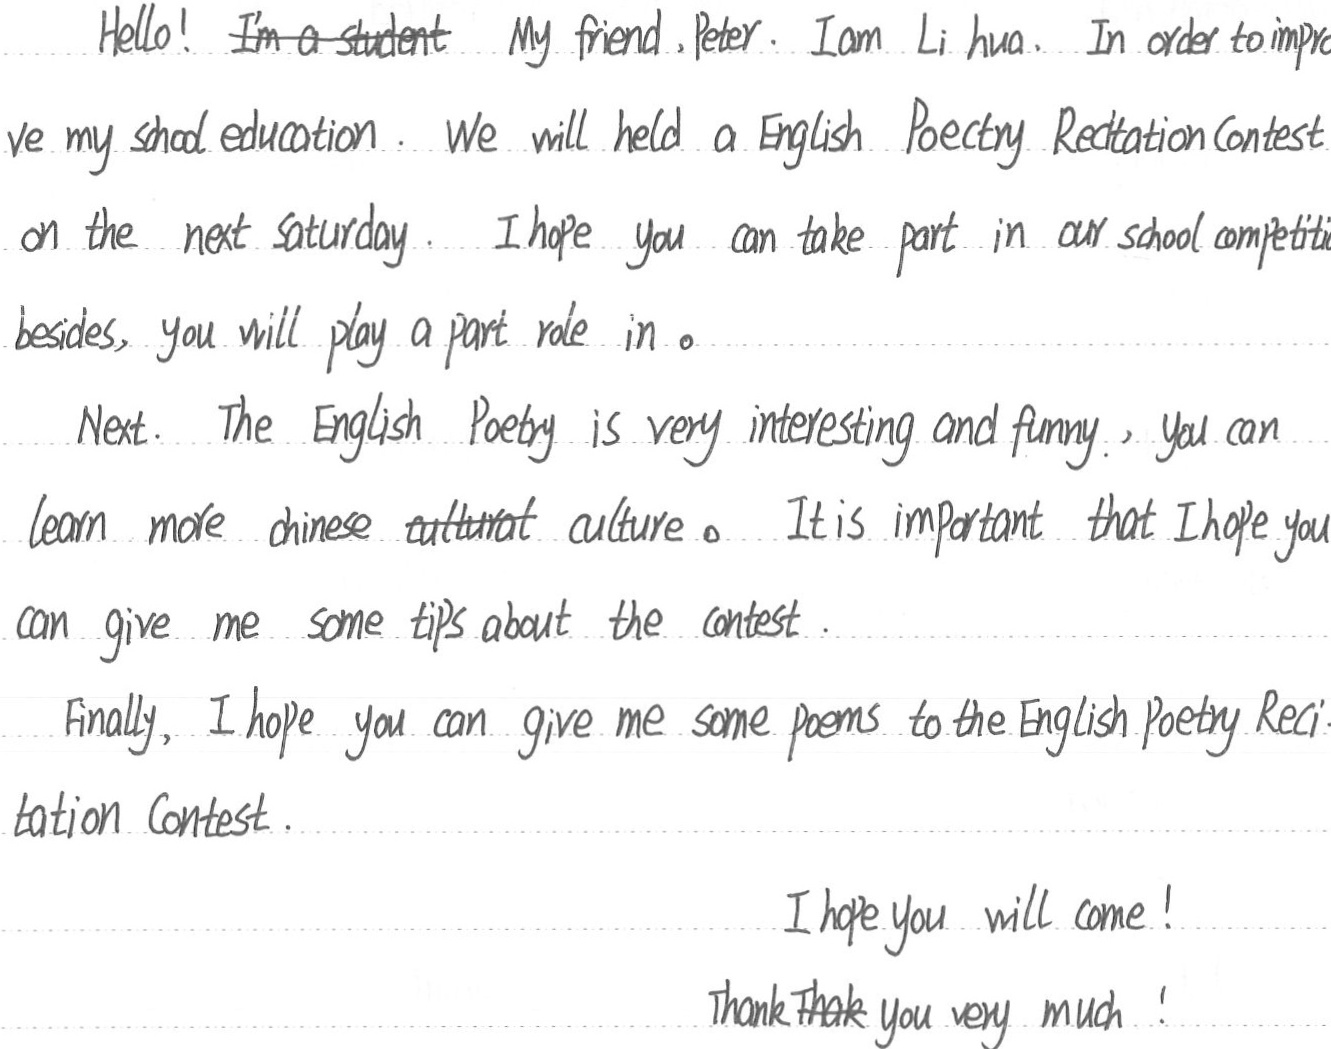 Hello! I'm a student My friend, Peter. I am Li hua. In order to impro
ve my school education. We will held a English Poectry Recitation Contest
on the next saturday. I hope you can take part in our school competiti
besides, you will play a part role in。
Next. The English Poetry is very interesting and funny., you can
learn more chinese cultural culture。 It is important that I hope you
can give me some tips about the contest.
Finally, I hope you can give me some poems to the English Poetry Reci-
tation Contest.
I hope you will come!
Thank Thak you very much!